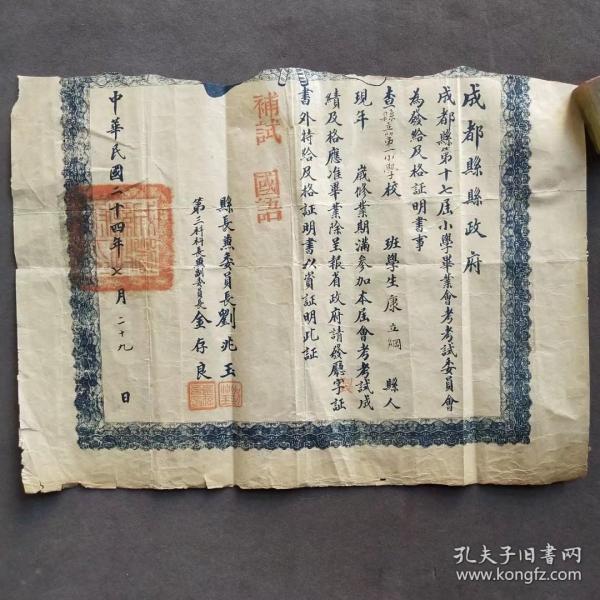 成都縣縣政府
成都縣第十七屆小學畢業會考考試委員會
為發給及格証明書事
查縣立第一小學校 班學生康立綱 縣人
現年 歲修業期滿參加本屆會考考試成
績及格應准畢業除呈報省政府請發廳字証
書外特給及格証明書以資証明此証
補試 國語
縣長兼委員長劉兆玉
第三科科長兼副委員長金存良
中華民國二十四年七月二十九日
孔夫子旧书网
www.kongfz.com